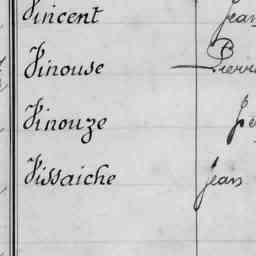 Vincent Jean
Vinouse Pierre
Vinouze
Vissaiche Jean